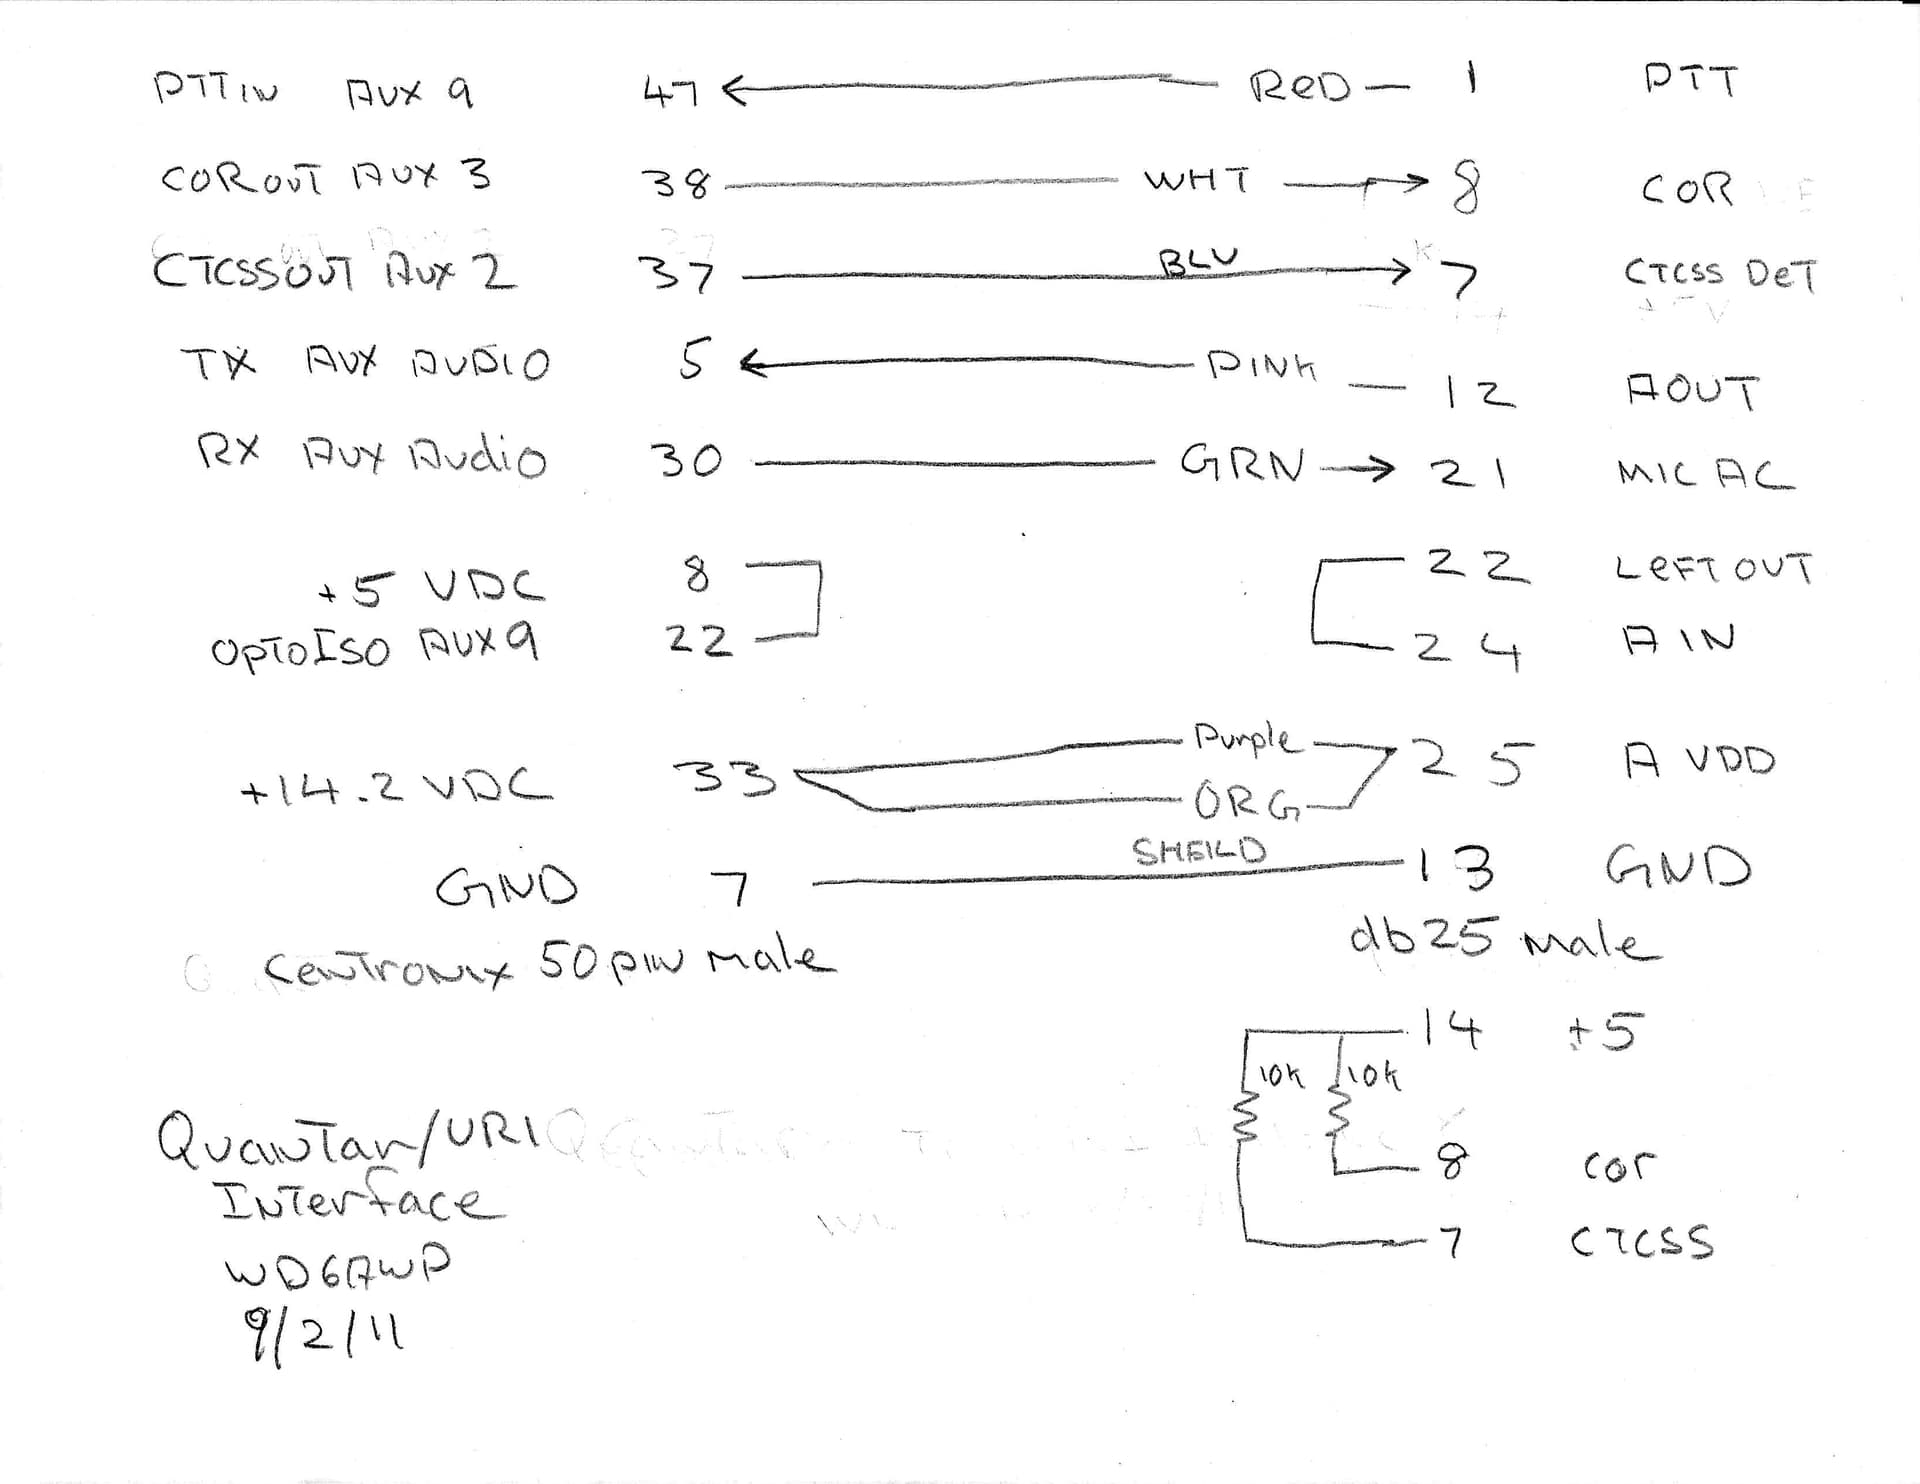 PTT IN AUX 9 47 RED 1 PTT
COR OUT AUX 3 38 WHT 8 COR
CTCSS OUT AUX 2 37 BLU 7 CTCSS DeT
TX AUX AUDIO 5 PINK 12 AOUT
RX AUX Audio 30 GRN 21 MIC AC
+5 VDC 8 22 LeFT OUT
OPTO ISO AUX 9 22 24 A IN
+14.2 VDC 33 Purple 25 A VDD
ORG
SHEILD
GND 7 13 GND
CenTronix 50 pin male db25 male
14 +5
10K 10K
8 cor
7 CTCSS
QuanTar/URI
InTerface
WD6AWP
9/2/11